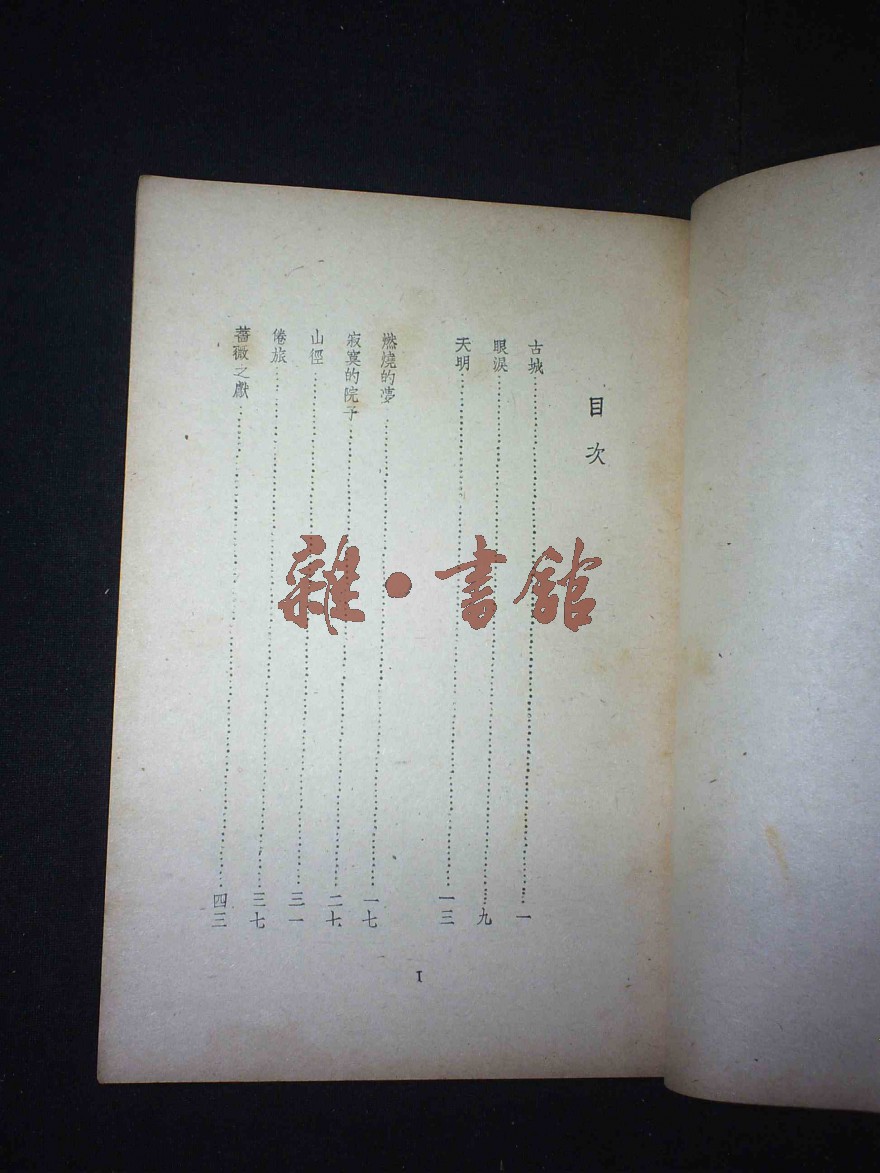 目次
古城 一
眼淚 九
天明 一三
燃燒的夢 一七
寂寞的院子 二十
山徑 三一
倦旅 三七
薔薇之獻 四三
I
雜·書館